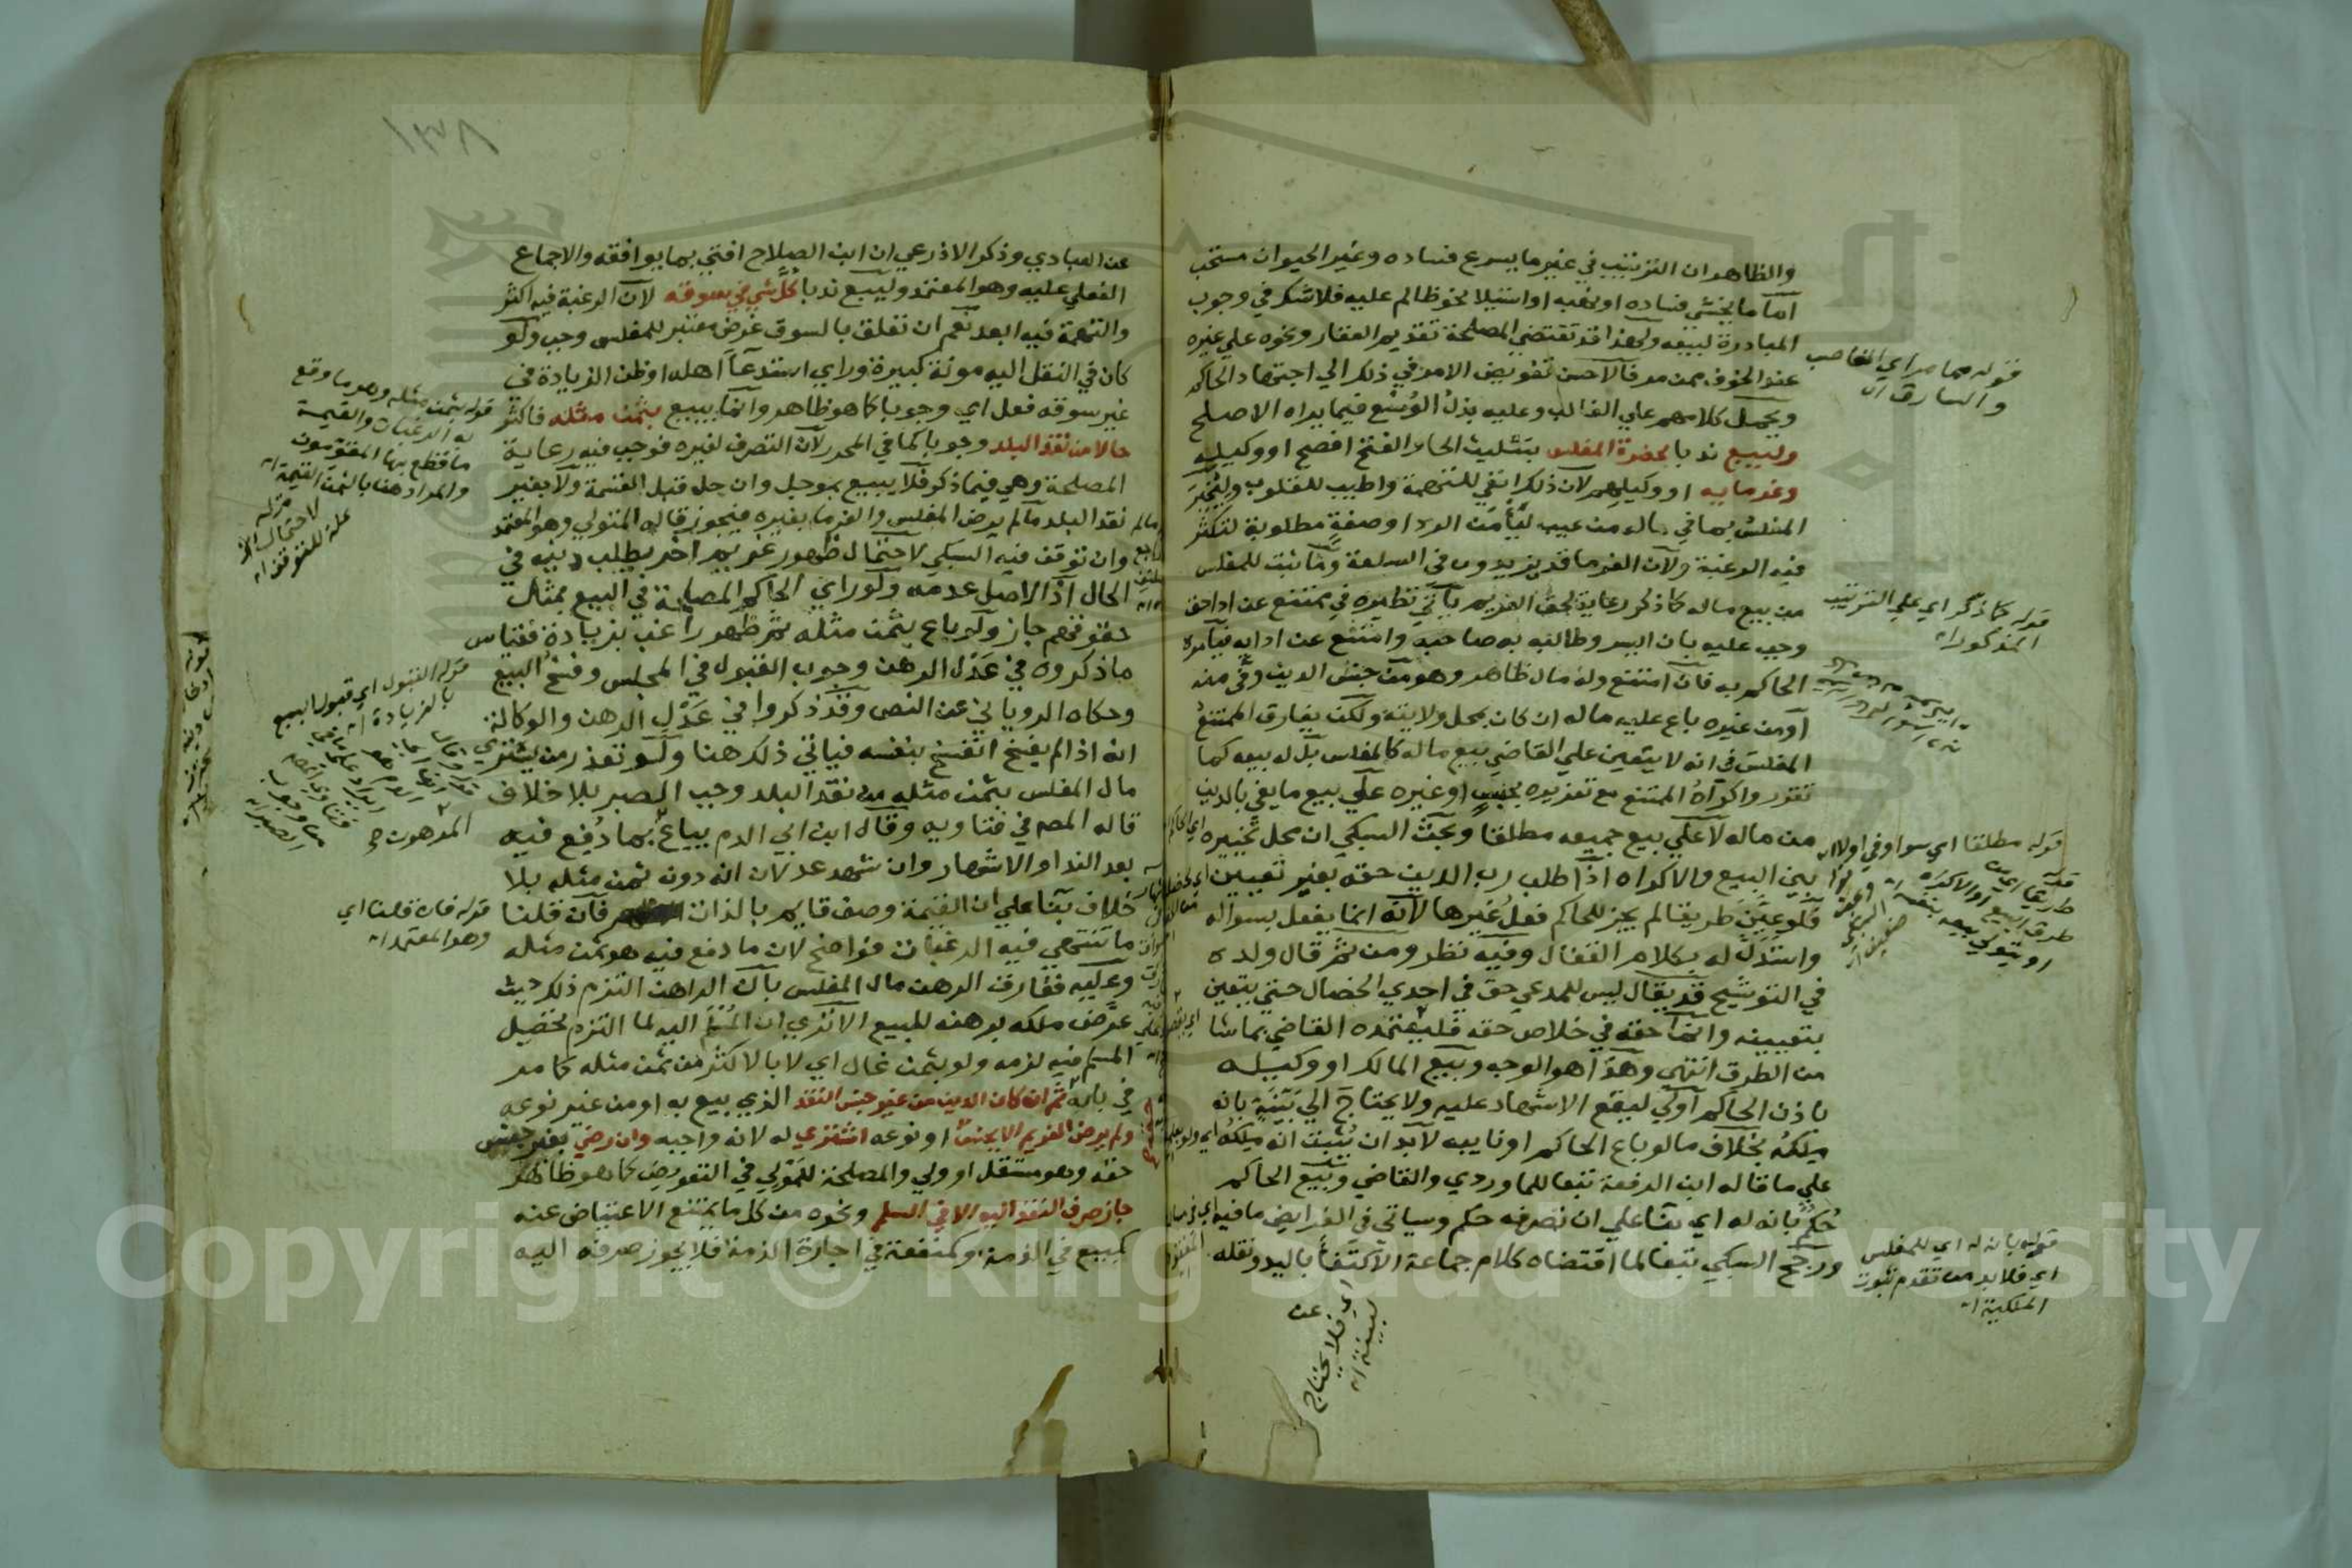 والظاهر ان الترتيب في غير ما يسرع فساده وغير الحيوان مستحب
اما ما يخشى فساده او نهبه او استيلا نحو ظالم عليه فلا شك في وجوب
المبادرة لبيعه ولهذا قد تقتضي المصلحة تقديم العقار ونحوه علي غيره
عند الخوف ممن مر فالاحسن تفويض الامر في ذلك الي اجتهاد الحاكم
ويحمل كلامهم علي الغالب وعليه بذل الوسع فيما يراه الاصلح
وليبيع ندبا بحضرة المفلس بتثليث الحا والفتح افصح او وكيله
وغرمايه او وكيلهم لان ذلك انفي للتهمة واطيب للقلوب وليخبر
المفلس بما في ماله من عيب ليأمن الرد او صفة مطلوبة لتكثر
فيه الرغبة ولان الغرما قد يزيدون في السلعة وما ثبت للمفلس
من بيع ماله كما ذكر رعاية لحق الغريم يأتي نظيره في ممتنع عن ادا حق
وجب عليه بان ايسر وطالبه به صاحبه وامتنع عن ادايه فيأمره
الحاكم به فان امتنع وله مال ظاهر وهو من جنس الدين وفي منه
او من غيره باع عليه ماله ان كان بمحل ولايته ولكن يفارق الممتنع
المفلس في انه لا يتعين علي القاضي بيع ماله كالمفلس بل له بيعه كما
تقرر واكراه الممتنع مع تعزيره بحبس او غيره علي بيع ما يفي بالدين
من ماله لا علي بيع جميعه مطلقا وبحث السبكي ان محل تخييره
بين البيع والاكراه اذا طلب رب الدين حقه بغير تعيين
فلو عين طريقا لم يجز للحاكم فعل غيرها لانه انما يفعل بسواله
واستدل له بكلام القفال وفيه نظر ومن ثم قال ولده
في التوشيح قد يقال ليس للمدعي حق في احدي الخصال حتي يتعين
بتعيينه وانما حقه في خلاص حقه فليعتمده القاضي بما شا
من الطرق انتهى وهذا هو الوجه وبيع المالك او وكيله
باذن الحاكم اولي ليقع الاشهاد عليه ولا يحتاج الي بينة بانه
ملكه بخلاف ما لو باع الحاكم او نايبه لا بد ان يثبت انه ملكه
علي ما قاله ابن الرفعة تبعا للماوردي والقاضي وبيع الحاكم
حكم بانه له اي بنا علي ان تصرفه حكم وسياتي في الفرايض ما فيه
ورجح السبكي تبعا لما اقتضاه كلام جماعة الاكتفا باليد ونقله
عن
قوله ممن مر اي الغاصب
والسارق اه
قوله كما ذكر اي علي الترتيب
المذكور اه
قوله مطلقا اي سوا وفي او لا اه
قوله بانه له اي للمفلس
اي فلا بد من تقدم ثبوت
الملكية اه
اي فلا يحتاج
لبينة اه
١٣٨
عن العبادي وذكر الاذرعي ان ابن الصلاح افتي بما يوافقه والاجماع
الفعلي عليه وهو المعتمد وليبع ندبا كل شي في سوقه لان الرغبة فيه اكثر
والتهمة فيه ابعد نعم ان تعلق بالسوق غرض معتبر للمفلس وجب ولو
كان في النقل اليه مونة كبيرة وراي استدعا اهله او ظن الزيادة في
غير سوقه فعل اي وجوبا كما هو ظاهر وانما يبيع بثمن مثله فاكثر
حالا من نقد البلد وجوبا كما في المحرر لان التصرف لغيره فوجب فيه رعاية
المصلحة وهي فيما ذكر فلا يبيع بموجل وان حل قبل القسمة ولا بغير
نقد البلد ما لم يرض المفلس والغرما بغيره فيجوز قاله المتولي وهو المعتمد
وان توقف فيه السبكي لاحتمال ظهور غريم اخر يطلب دينه في
الحال اذ الاصل عدمه ولو راي الحاكم المصلحة في البيع بمثل
حقوقهم جاز ولو باع بثمن مثله ثم ظهر راغب بزيادة فقياس
ما ذكروه في عدل الرهن وجوب القبول في المجلس وفسخ البيع
وحكاه الروياني عن النص وقد ذكروا في عدل الرهن والوكالة
انه اذا لم يفسخ انفسخ بنفسه فياتي ذلك هنا ولو تعذر من يشتري
مال المفلس بثمن مثله من نقد البلد وجب الصبر بلا خلاف
قاله المص في فتاويه وقال ابن ابي الدم يباع بما دفع فيه
بعد الندا والاشهار وان شهد عدلان انه دون ثمن مثله بلا
خلاف بنا علي ان القيمة وصف قايم بالذات فان قلنا
ما تنتهي فيه الرغبات فواضح لان ما دفع فيه هو ثمن مثله
وعليه ففارق الرهن مال المفلس بان الراهن التزم ذلك حيث
عرض ملكه برهنه للبيع الا تري ان المسلم اليه لما التزم تحصيل
المسلم فيه لزمه ولو بثمن غال اي لا بالاكثر من ثمن مثله كما مر
في بابه ثم ان كان الدين من غير جنس النقد الذي بيع به او من غير نوعه
ولم يرض الغريم الا بجنس او نوعه اشتري له لانه واجبه وان رضي بغير جنس
حقه وهو مستقل او ولي والمصلحة للمولي في التعويض كما هو ظاهر
جاز صرف النقد اليه الا في السلم ونحوه من كل ما يمتنع الاعتياض عنه
كمبيع في الذمة او كمنفعة في اجارة الذمة فلا يجوز صرفه اليه
قوله بثمن مثله وهو ما وقع
به الرغبات والقيمة
ما قطع بها المقومون
والمراد هنا بالثمن القيمة اه
قوله
لاحتمال الخ
علة للتوقف اه
قوله القبول اي قبول البيع
بالزيادة اه
قوله فان قلنا اي
وهو المعتمد اه
Copyright © King Saud University